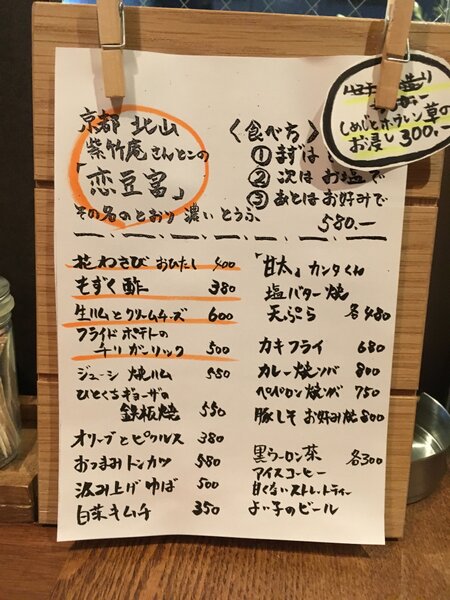 京都 北山
紫竹庵 さんとこの
「恋豆富」
その名のとおり 濃い とうふ
〈食べ方〉
① まずは
② 次は お塩で
③ あとは お好みで
580.—
しめじとホウレン草の
お浸し 300.—
花わさび おひたし 400
もずく酢 380
生ハムとクリームチーズ 600
フライドポテトの
チリガーリック 500
ジューシー 焼ハム 550
ひとくちギョーザの
鉄板焼 550
オリーブとピクルス 380
おつまみトンカツ 580
汲み上げゆば 500
白菜キムチ 350
「甘太」カンタくん
塩バター焼
天ぷら 各480
カキフライ 680
カレー焼ソバ 800
ペペロン焼ソバ 750
豚しそ お好み焼 800
黒ウーロン茶 各300
アイスコーヒー
甘くないストレートティー
よい子のビール